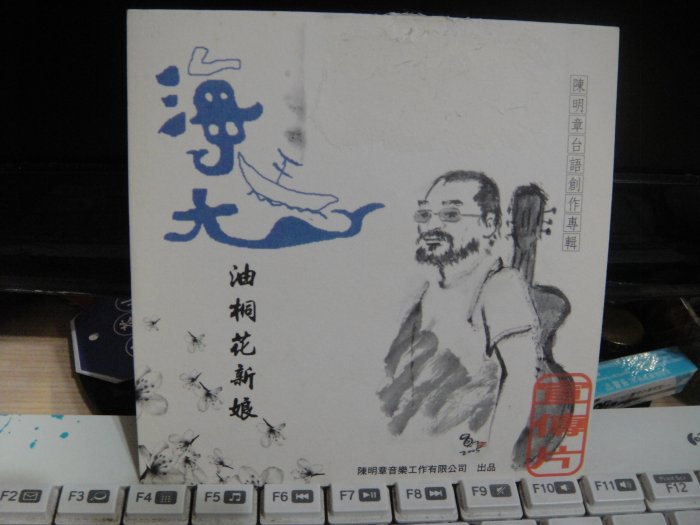 海大
陳明章台語創作專輯
油桐花新娘
2005
宣傳片
陳明章音樂工作有限公司 出品
F2
F3
F4
F5
F6
F7
F8
F9
F10
F11
F12